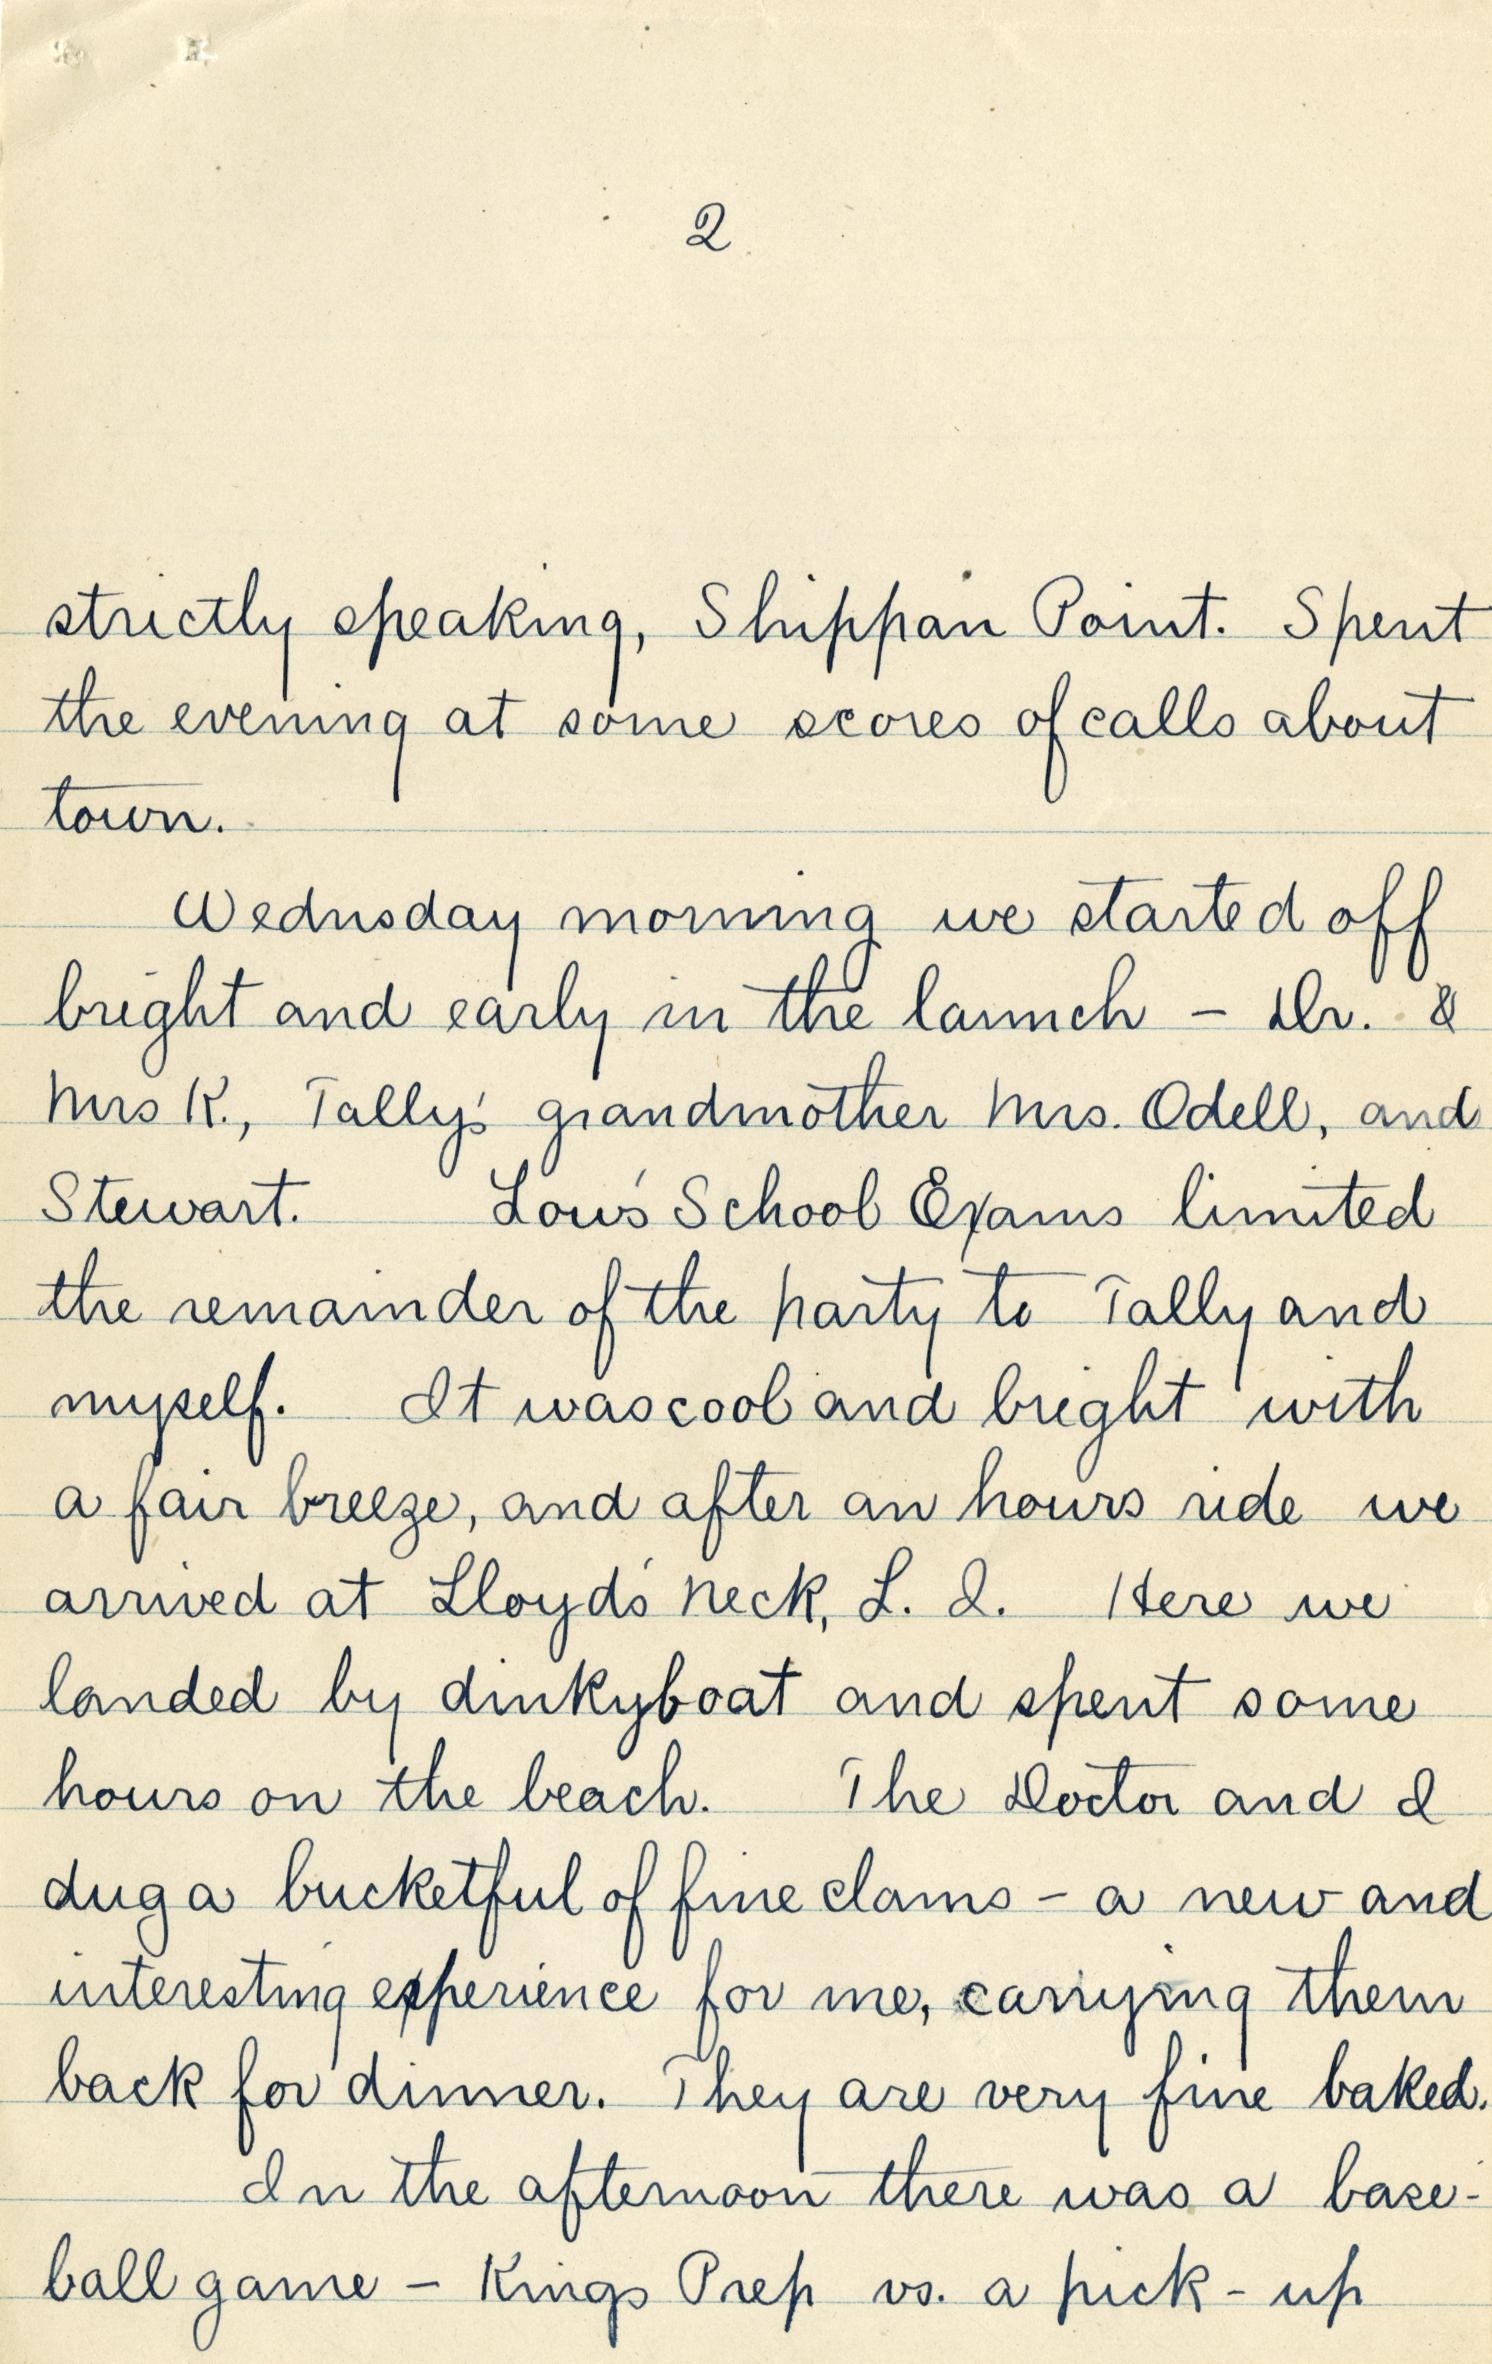 2
strictly speaking, Shippan Point. Spent
the evening at some scores of calls about
town.
Wednsday morning we started off
bright and early in the launch - Dr. &
Mrs K., Tally's grandmother Mrs. Odell, and
Stewart. Lou's School Exams limited
the remainder of the party to Tally and
myself. It was cool and bright with
a fair breeze, and after an hours ride we
arrived at Lloyd's Neck, L. I. Here we
landed by dinkyboat and spent some
hours on the beach. The Doctor and I
dug a bucketful of fine clams - a new and
interesting experience for me, carrying them
back for dinner. They are very fine baked.
In the afternoon there was a base-
ball game - Kings Prep vs. a pick-up